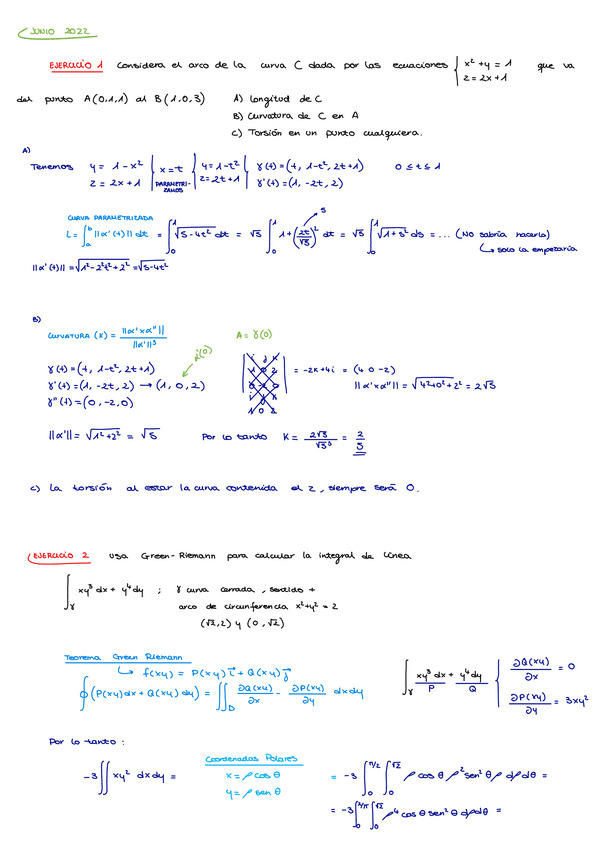 JUNIO 2022
EJERCICIO 1 Considera el arco de la curva C dada por las ecuaciones { x² + y = 1 que va
z = 2x + 1
del punto A(0,1,1) al B(1,0,3) A) Longitud de C
B) Curvatura de C en A
C) Torsión en un punto cualquiera.
A)
Tenemos y = 1 - x² | x = t { y = 1 - t² | γ(t) = (t, 1-t², 2t+1) 0 ≤ t ≤ 1
z = 2x + 1 | PARAMETRIZAMOS { z = 2t + 1 | γ'(t) = (1, -2t, 2)
CURVA PARAMETRIZADA
L = ∫_a^b ||α'(t)|| dt = ∫_0^1 √5-4t² dt = √5 ∫_0^1 1 + (2t/√5)² dt = √5 ∫_0^1 √1+s² ds = ... (No sabría hacerlo)
s
↳ solo la empezaría
||α'(t)|| = √1²-2²t²+2² = √5-4t²
B)
CURVATURA (K) = ||α'×α''|| / ||α'||³ A = γ(0)
γ(0)
γ(t) = (t, 1-t², 2t+1) = -2k + 4i = (4 0 -2)
γ'(t) = (1, -2t, 2) → (1, 0, 2) ||α'×α''|| = √4²+0²+2² = 2√5
γ''(t) = (0, -2, 0)
1 0 2
||α'|| = √1²+2² = √5 Por lo tanto K = 2√5/√5³ = 2/5
c) La torsión al estar la curva contenida el z, siempre será 0.
EJERCICIO 2 Usa Green-Riemann para calcular la integral de línea
∫_γ xy³ dx + y⁴ dy ; γ curva cerrada, sentido +
arco de circunferencia x²+y² = 2
(√2,2) y (0,√2)
Teorema Green Riemann
↳ f(xy) = P(xy) i + Q(xy) j
∮ (P(xy)dx + Q(xy)dy) = ∬_D ∂Q(xy)/∂x - ∂P(xy)/∂y dxdy
∫_γ xy³ dx + y⁴ dy { ∂Q(xy)/∂x = 0
P Q { ∂P(xy)/∂y = 3xy²
Por lo tanto:
Coordenadas Polares
-3 ∬ xy² dxdy = x = ρ cos θ = -3 ∫_0^π/2 ∫_0^√2 ρ cos θ ρ² sen² θ ρ dρdθ =
y = ρ sen θ
= -3 ∫_0^2/π ∫_0^√2 ρ⁴ cos θ sen² θ dρdθ =